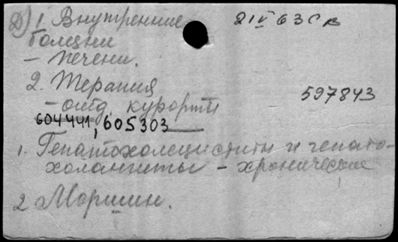 1. Внутренние 21 V 63 Св
болезни
- печени.
2. Терапия
- отд. курорты 597843
604441, 605303
1. Гепатохолециститы и гепато-
холангиты - хронические
2 Моршин.